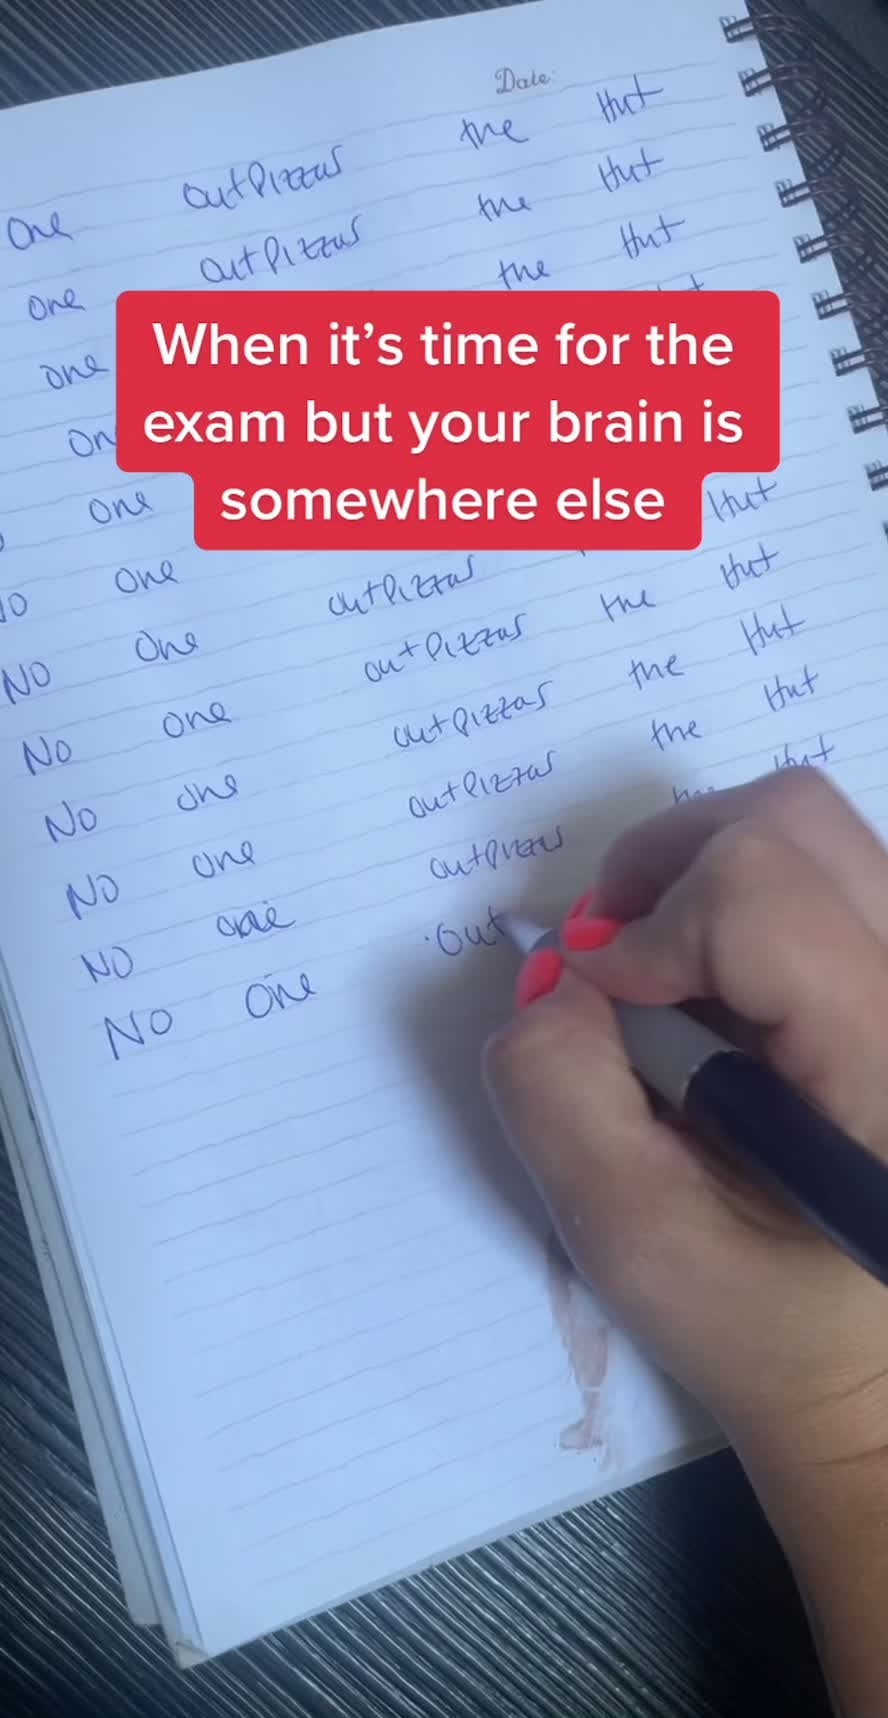 Date:
One outPizzas the Hut
One outPizzas the Hut
one the Hut
When it's time for the
exam but your brain is
somewhere else
one
one
NO one outPizzas Hut
No one outPizzas the Hut
No one outPizzas the Hut
NO one outPizzas the Hut
NO one outPizzas the Hut
NO One Out